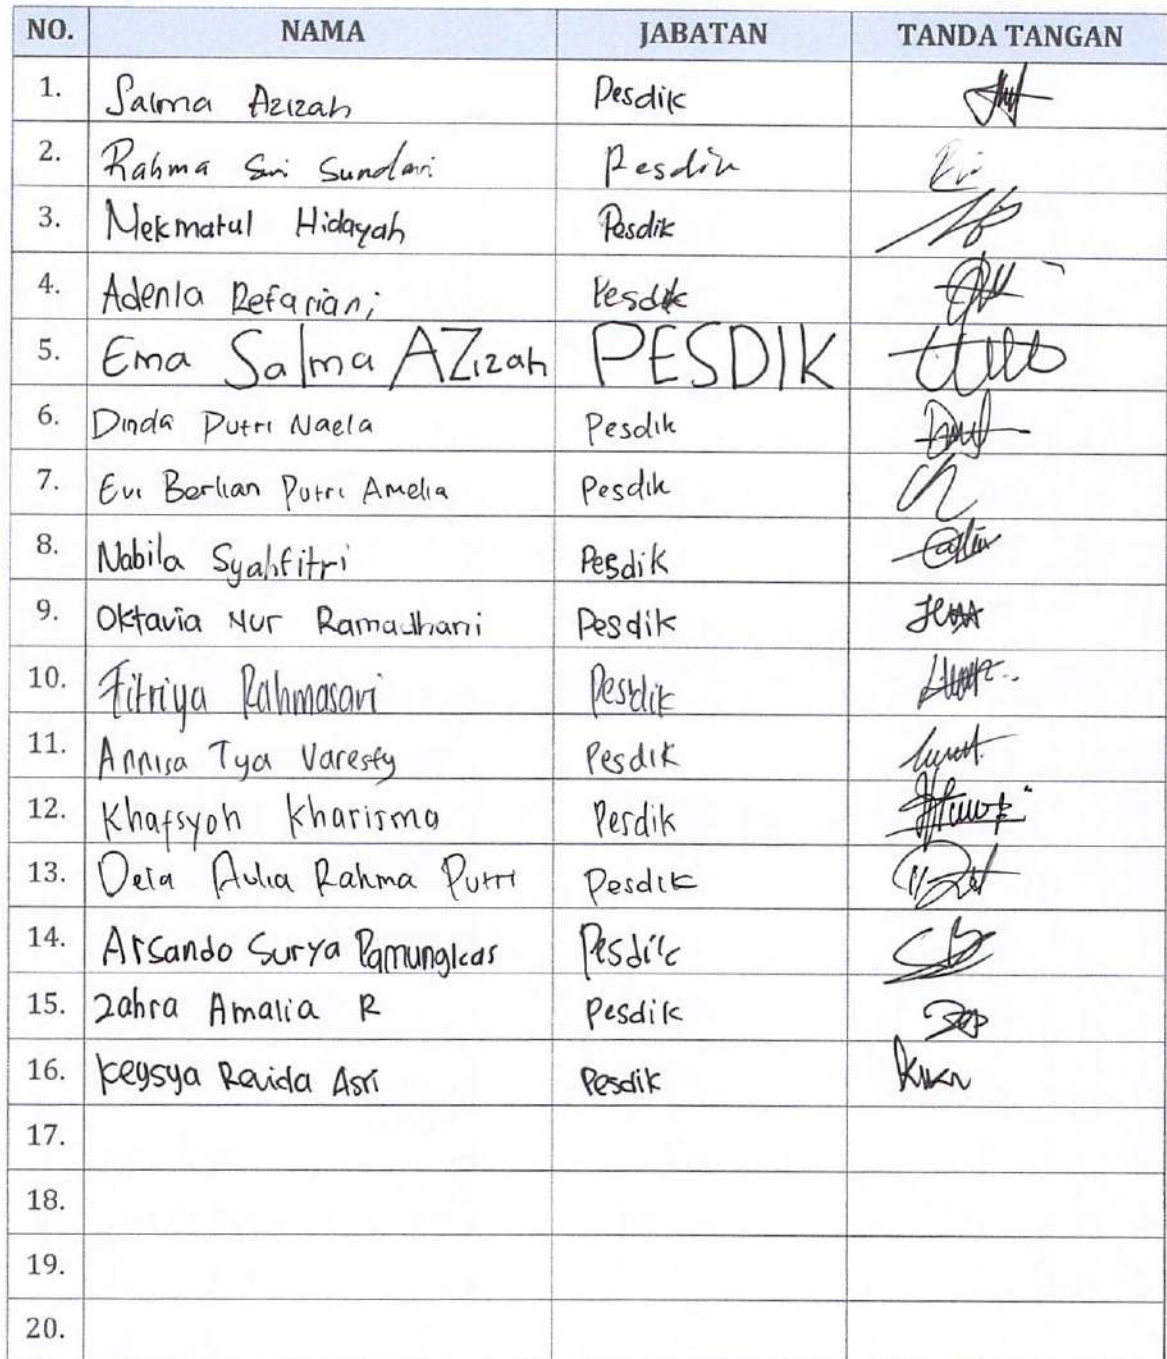 NO. NAMA JABATAN TANDA TANGAN
1. Salma Azizah Pesdik
2. Rahma Sri Sundari Pesdik
3. Nekmatul Hidayah Pesdik
4. Adenla Refariani Pesdik
5. Ema Salma AZizah PESDIK
6. Dinda Putri Naela Pesdik
7. Evi Berlian Putri Amelia Pesdik
8. Nabila Syahfitri Pesdik
9. Oktavia Nur Ramadhani Pesdik
10. Fitriya Rahmasari Pesdik
11. Annisa Tya Varesty Pesdik
12. Khafsyoh Kharisma Pesdik
13. Aulia Rahma Putri Pesdik
14. Arsando Surya Pamungkas Pesdik
15. Zahra Amalia R Pesdik
16. Keysya Revida Asri Pesdik
17.
18.
19.
20.